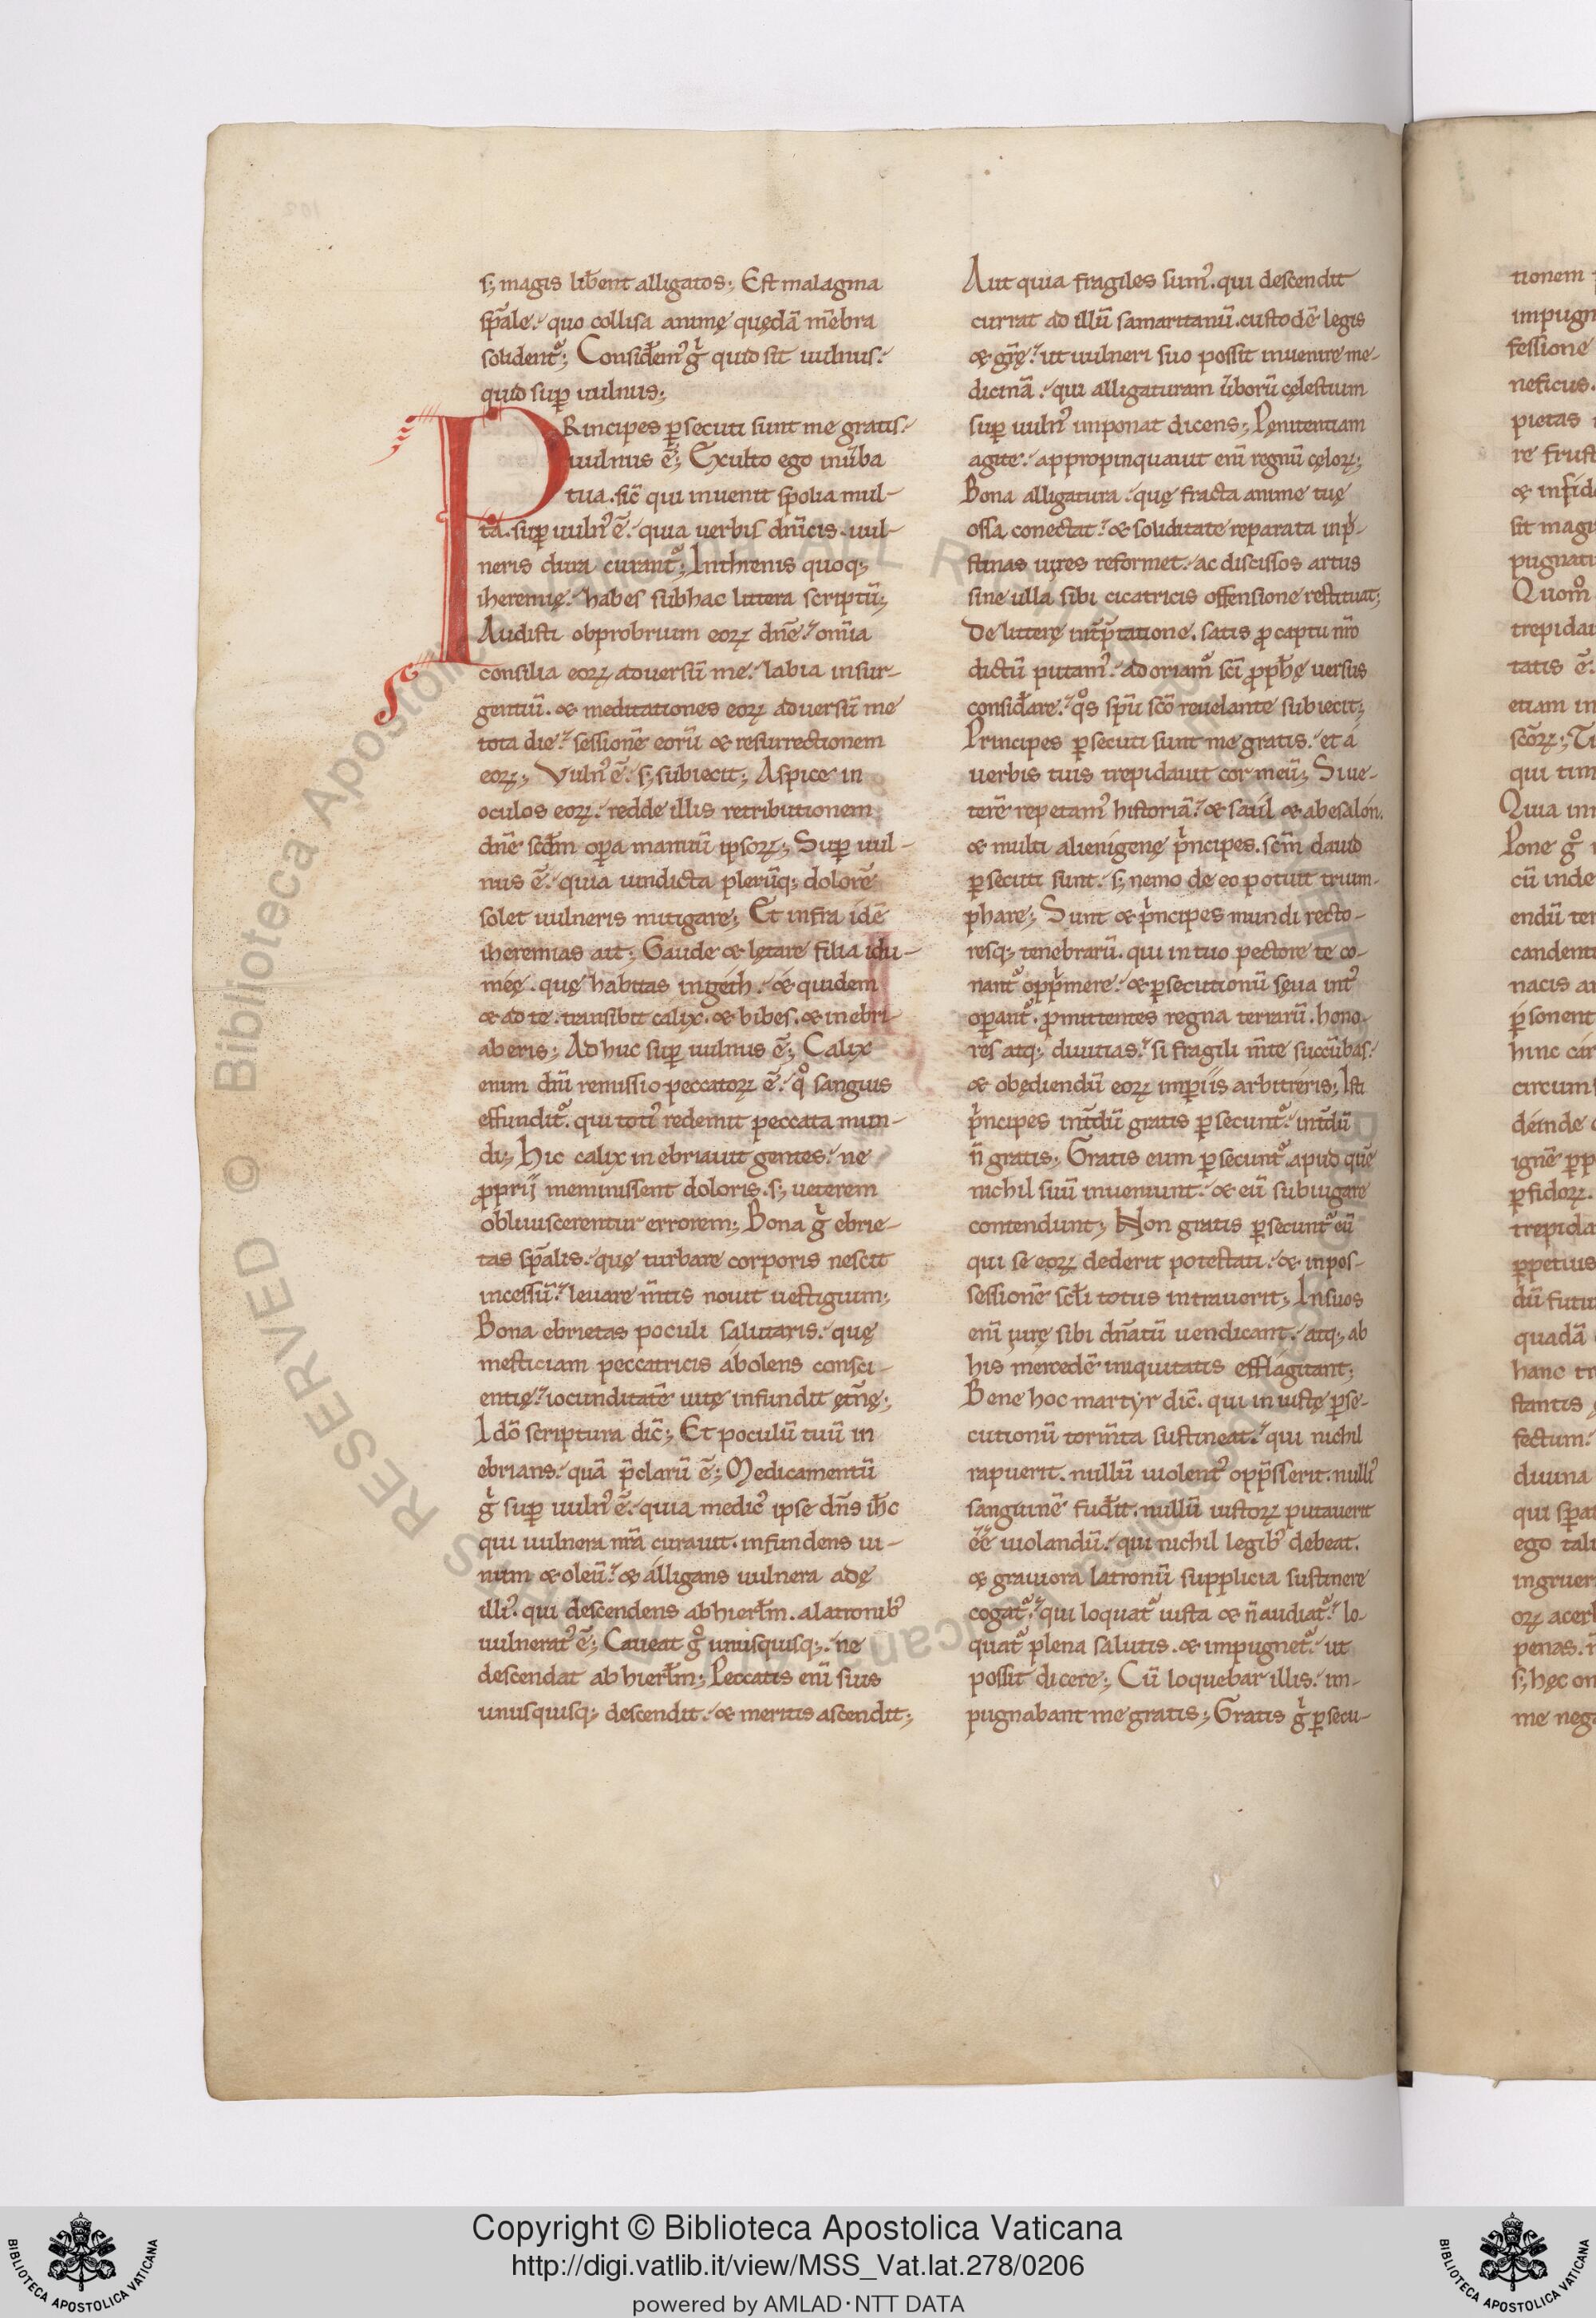 s; magis liƀent alligatos; Est malagma
sp̄ale. quo collisa animę quędā m̄ebra
solident᷑; Considem᷒ gͥ quid sit uulnus.
quid sup̲ uulnus;
PRincipes ꝑsecuti sunt me gratis.
uulnus ē; Exulto ego inūba
tua. sic̄ qui inuenit spolia mul-
ta. sup̲ uuln᷒ ē. quia uerbis dn̄icis. uul-
neris dura curant᷑; Inthrenis quoq;
iheremię. habes subhac littera scriptū;
Audisti obprobrium eoꝝ dn̄e. om̄ia
consilia eoꝝ aduersū me. labia insur-
gentiū. & meditationes eoꝝ aduersū me
tota die. sessionē eorū & resurrectionem
eoꝝ; Vuln᷒ ē. s; subiecit; Aspice in
oculos eoꝝ. redde illis retributionem
dn̄e scdm̄ oꝑa manuū ipsoꝝ; Suꝑ uul-
nus ē. quia uindicta plerūq; dolorē
solet uulneris mitigare; Et infra idē
iheremias ait; Gaude & lętare filia idu-
méę. quę habitas ingéth. & quidem
& ad te. transibit calix. & bibes. & inebri-
aberis; Ad huc suꝑ uulnus ē; Calix
enim dn̄i remissio peccatoꝝ ē. qͦ sanguis
effundit᷑. qui toti᷒ redemit peccata mun-
di; hic calix inebriauit gentes. ne
ꝓprij meminissent doloris. s; ueterem
obliuiscerentur errorem; Bona gͥ ebrie-
tas sp̄alis. quę turbare corporis nescit
incessū. leuare m̄tis nouit uestigium;
Bona ebrietas poculi salutaris. quę
mesticiam peccatricis ábolens consci-
entię. iocunditatē uitę infundit ęt̄nę;
Idō scriptura dic̄; Et poculū tuū in
ebrians. quā p̄clarū ē; Medicamentū
gͥ suꝑ uuln᷒ ē. quia medic᷒ ipse dn̄s ih̄c
qui uulnera nr̄a curauit. infundens ui-
num & oleū. & álligans uulnera adę
illi᷒. qui descendens abhierłm. alatronib᷒
uulnerat᷒ ē; Caueat gͦ unusquisq;. ne
descendat ab hierłm; Peccatis enī suis
unusquisq; descendit. & meritis ascendit;
Aut quia fragiles sum᷒. qui descendit
currat ad illū samaritanū. custodē legis
& gr̄ę. ut uulneri suo possit inuenire me-
dicinā. qui alligaturam ūborū cęlestium
suꝑ uuln᷒ imponat dicens; Pęnitentiam
agite. appropinquauit enī regnū cęloꝝ;
Bona alligatura. quę fracta anime tuę
ossa conectat. & soliditate reparata inpͥ-
stinas uires reformet. ac discissos artus
sine ulla sibi cicatricis offensione restituat;
De litterę int̄p̄tatione. satis ꝓ captu nr̄o
dictū putam᷒. adoriam᷑ sc̄i ꝓph̄ę uersus
considare. qͦs sp̄u sc̄o reuelante subiecit;
Principes ꝑsecuti sunt me gratis. et á
uerbis tuis trepidauit cor meū; Siue-
terē repetam᷒ historiā. & saúl & abesalón.
& multi alienigenę pͥncipes. sc̄m dauid
ꝑsecuti sunt. s; nemo de eo potuit trium-
phare; Sunt & pͥncipes mundi recto-
resq; tenebrarū. qui in tuo pectore te co-
nant᷑ oppͥmere. & ꝑsecutionū sęua int᷒
oꝑant᷑. ꝓmittentes regna terrarū. hono-
rés atq; diuitias. si fragili m̄te succūbas.
& obędiendū eoꝝ imꝑiis arbitréris; Isti
pͥncipes int̄dū gratis ꝑsecunt᷑. int̄dū
n̄ gratis; Gratis eum ꝑsecunt᷑. apud quē
nichil suū inueniunt. & eū subiugare
contendunt; Non gratis ꝑsecunt᷑ eū
qui se eoꝝ dederit potestati. & inpos-
sessionē scłi totus intrauerit; Insuos
enī iurę sibi dn̄atū uendicant. atq; ab
his mercedē iniquitatis efflágitant;
Bene hoc martyr dic̄. qui iniustę ꝑse-
cutionū torm̄ta sustineat. qui nichil
rapuerit. nullū uiolent᷒ opp̄sserit. nulli᷒
sanguinē fudit. nullū iustoꝝ putauerit
ēē uiolandū. qui nichil legib᷒ debeat.
& grauiora latronū supplicia sustinere
cogat᷑. qui loquat᷑ iusta & n̄ audiat᷑. lo-
quat᷑ plena salutis. & impugnet᷑. ut
possit dicere; Cū loquebar illis. im-
pugnabant me gratis; Gratis gͥ ꝑsecu-
tionem
impugn
fessione
neficus.
pietas
re frust
& infid
sit magi
pugnati
Quom̊
trepidau
tatis ē.
etiam in
sc̄oꝝ; Ti
qui tim
Quia in
Pone gͦ
cū inde
endū ter
candenti
nacis ar
pͥsonent
hinc cár
circum
déinde
ignē ꝓp
ꝑfidoꝝ.
trepida
ꝑpetius
dū futu
quadā
hanc tr
stantis
fectum.
diuina
qui sp̄at
ego tali
ingruer
oꝝ acerb
penas. n̄
s; hęc om
me nega
© Biblioteca Apostolica Vaticana ALL RIGHTS RESERVED
Copyright © Biblioteca Apostolica Vaticana
http://digi.vatlib.it/view/MSS_Vat.lat.278/0206
powered by AMLAD·NTT DATA
BIBLIOTECA APOSTOLICA VATICANA
BIBLIOTECA APOSTOLICA VATICANA